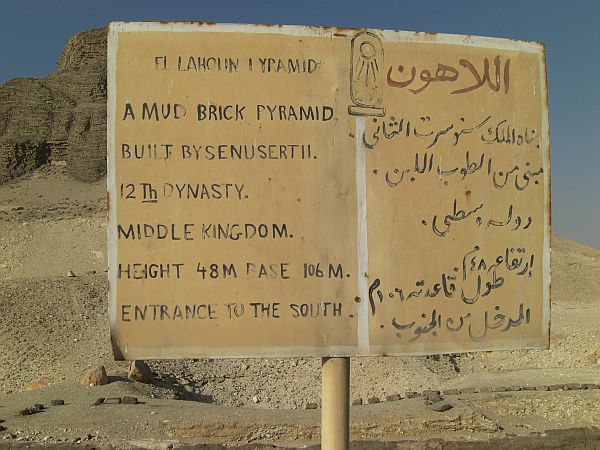 EL LAHOUN PYRAMID
A MUD BRICK PYRAMID
BUILT BY SENUSERT II.
12 Th DYNASTY.
MIDDLE KINGDOM.
HEIGHT 48M BASE 106M.
ENTRANCE TO THE SOUTH.
اللاهون
بناه الملك سنوسرت الثانى.
مبنى من الطوب اللبن.
دولة وسطى.
إرتفاعه ٤٨م
طول قاعدته ١٠٦م.
المدخل من الجنوب.